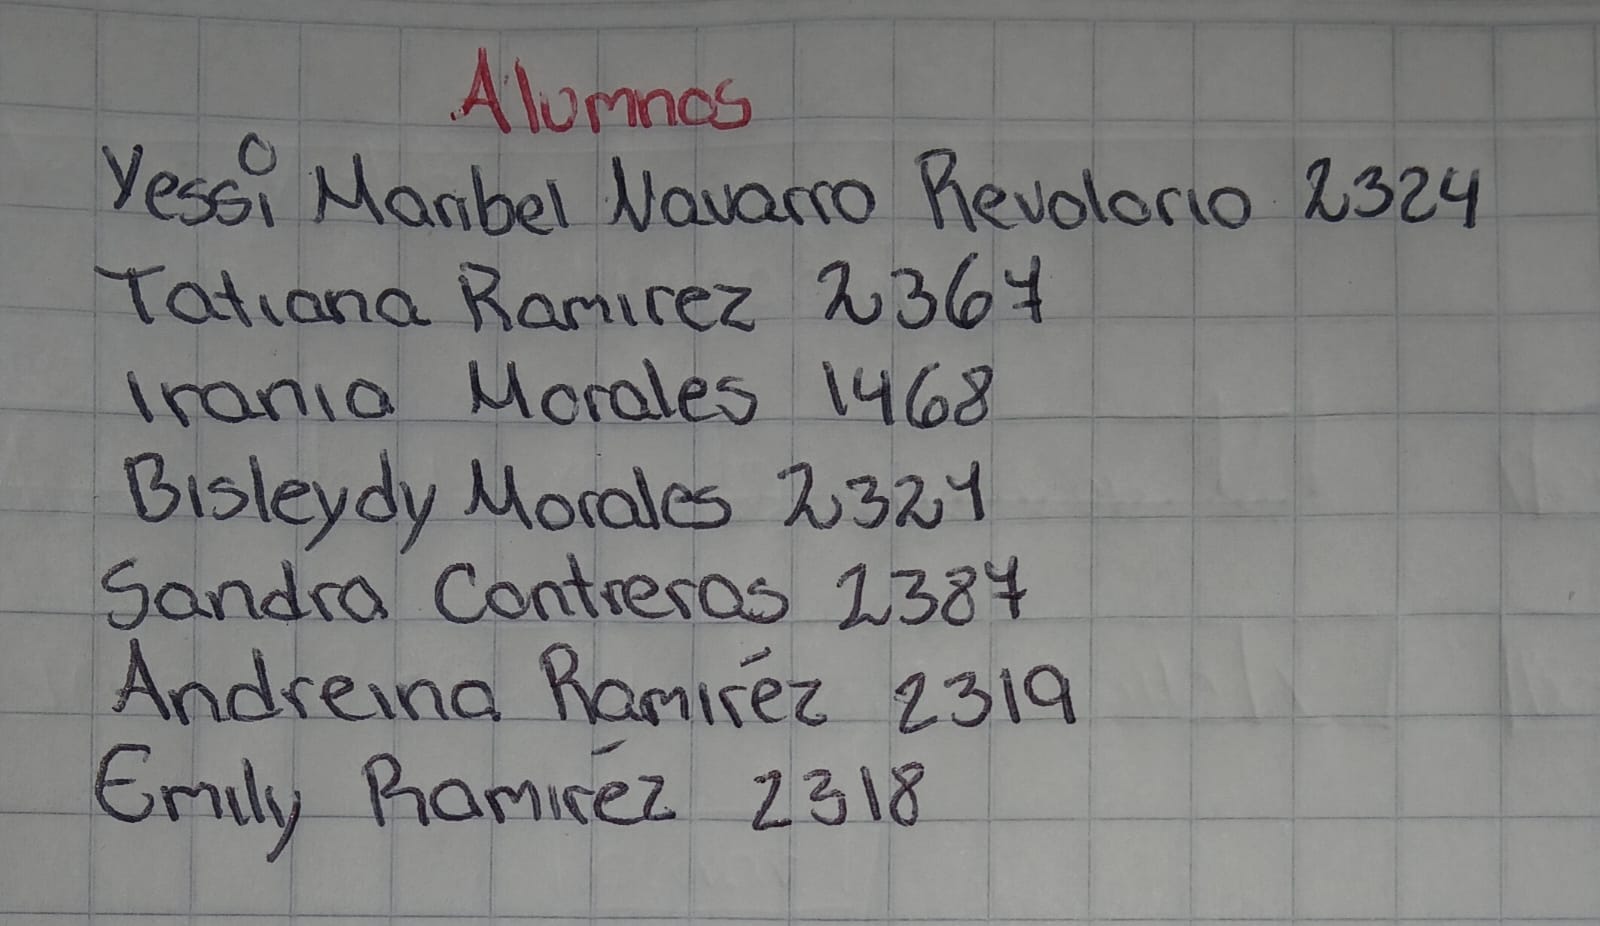 Alumnos
Yessi Maribel Navarro Revolorio 2324
Tatiana Ramirez 2367
Irania Morales 1468
Bisleydy Morales
Sandra Contreras 2387
Andreina Ramiréz 2319
Emily Ramiréz 2318